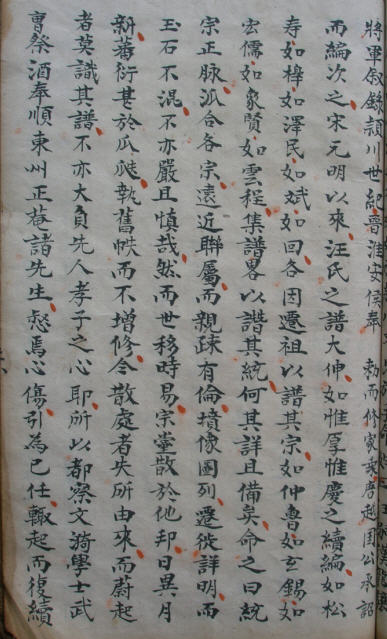 將軍叙錄潁川世紀晉淮安侯奉　勅而修家乘唐越國公承詔
而編次之宋元明以來汪氏之譜大伸如惟厚惟慶之續編如松
壽如樨如澤民如斌如回各因遷祖以譜其宗如仲魯如玄錫如
宏儒如象賢如雲程集譜畧以譜其統何其詳且備矣命之曰統
宗正脉派合各宗遠近聯屬而親疎有倫墳像圖列遷徙詳明而
玉石不混不亦嚴且慎哉然而世移時易宗黨散於他邦日異月
新蕃衍甚於瓜瓞執舊帙而不增修令散處者失所由來而蔚起
者莫識其譜不亦大負先人孝子之心耶所以都察文漪學士武
曹祭酒奉順東州正菴諸先生惄焉心傷引為已任輙起而復續